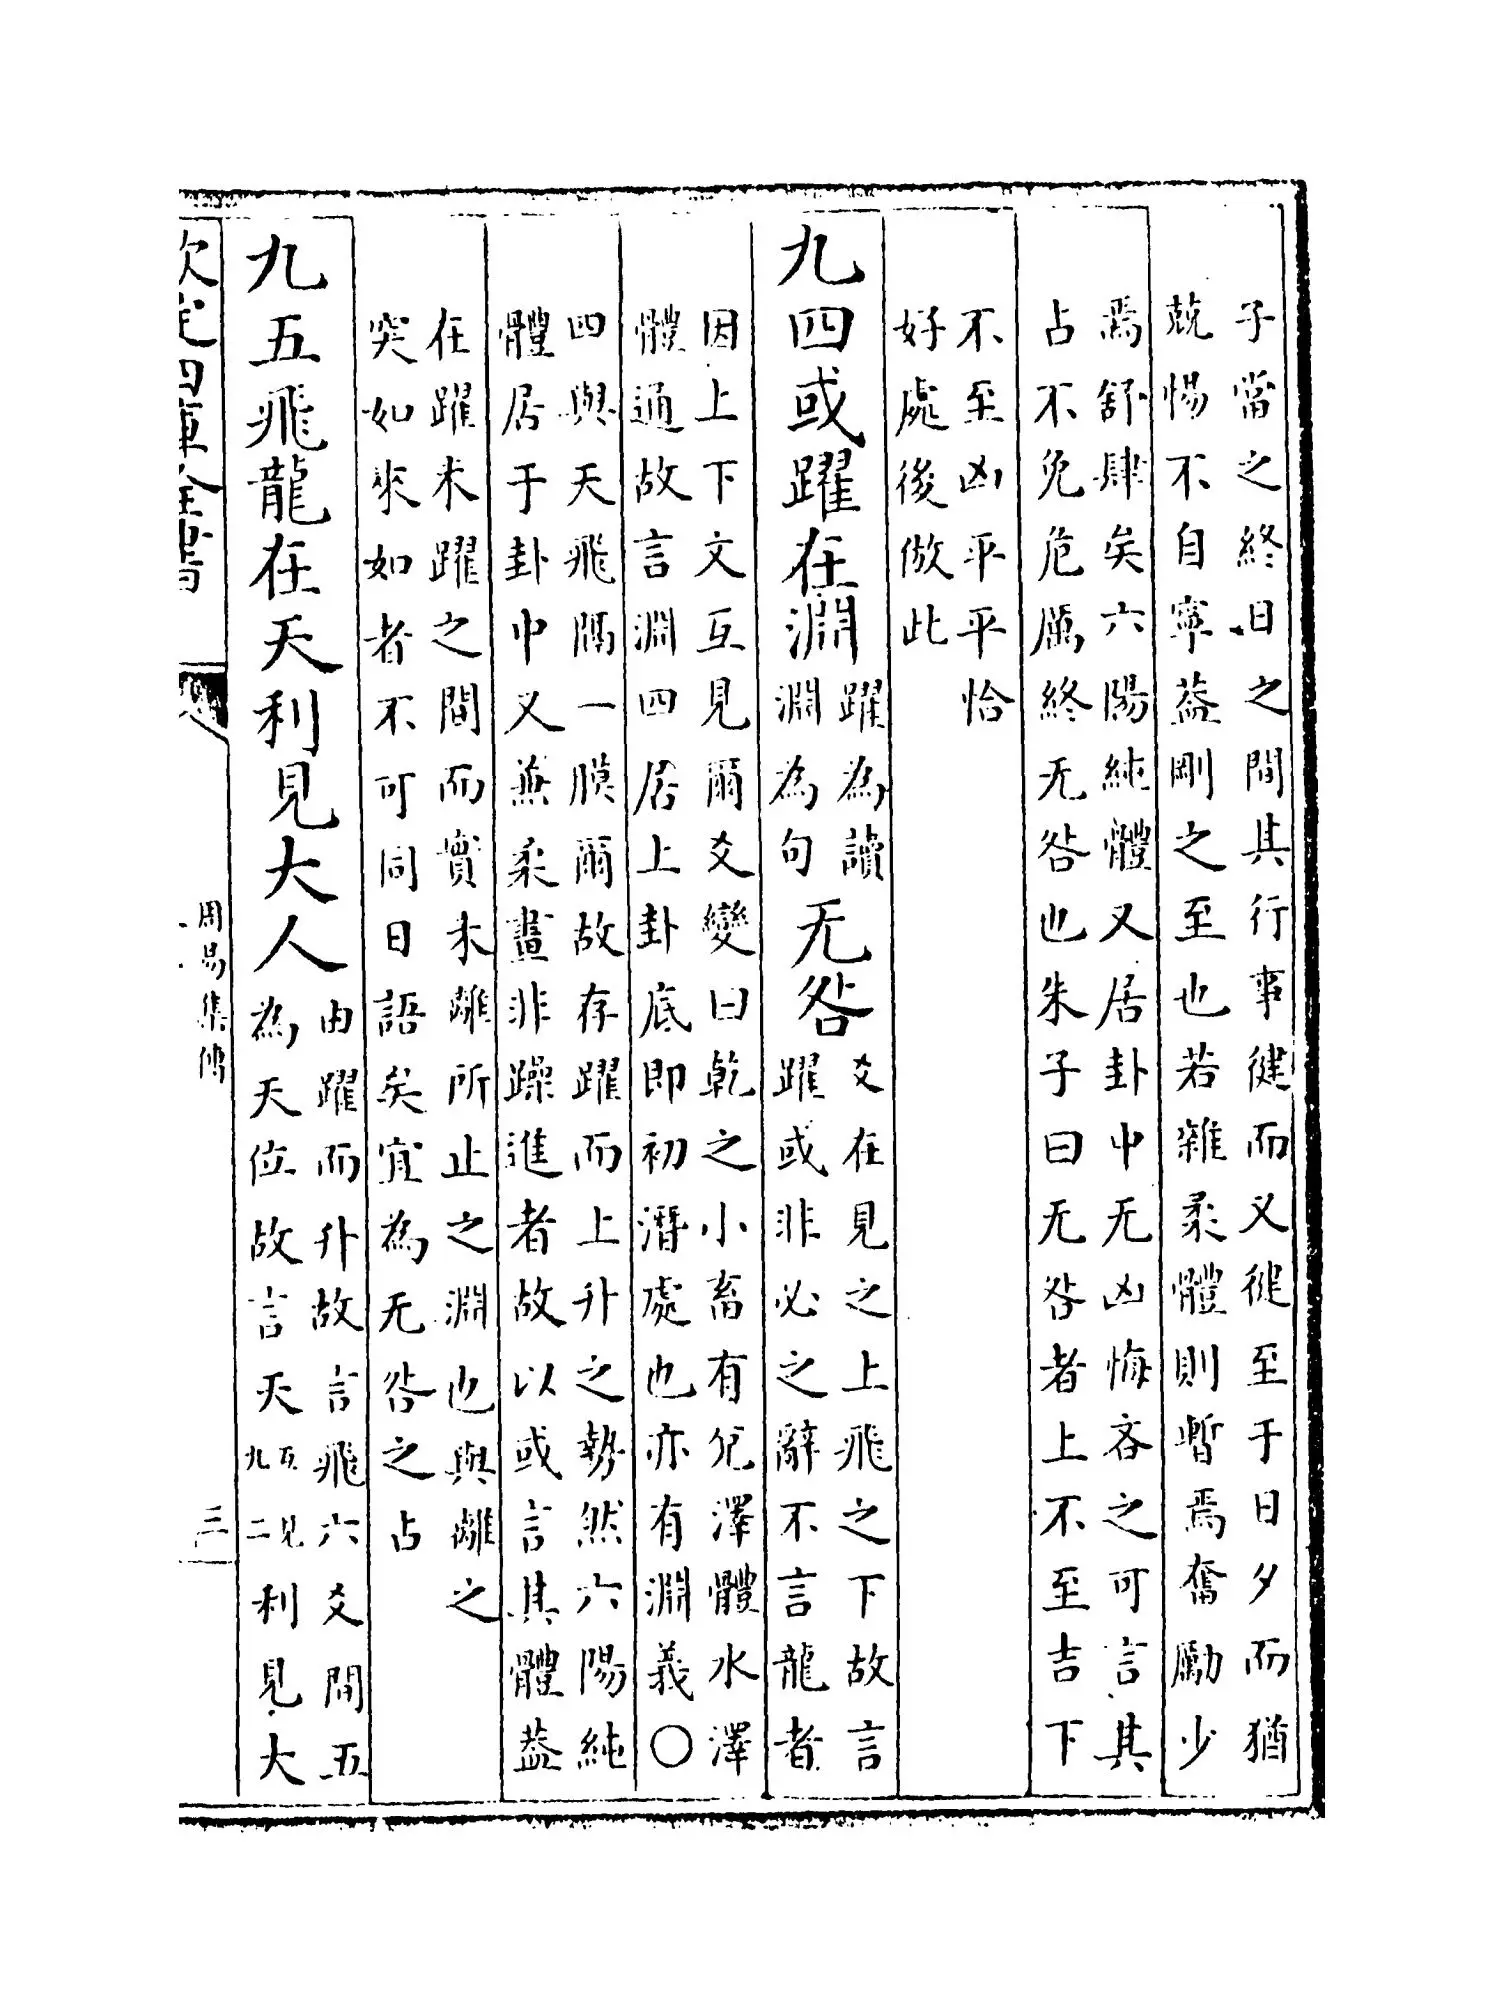 子當之終日之間其行事健而又健至于日夕而猶
兢惕不自寧葢剛之至也若雜柔體則暫焉奮勵少
焉舒肆矣六陽純體又居卦中无凶悔吝之可言其
占不免危厲終无咎也朱子曰无咎者上不至吉下
不至凶平平恰
好處後倣此
九四或躍在淵躍為讀
淵為句
无咎爻在見之上飛之下故言
躍或非必之辭不言龍者
因上下文互見爾爻變曰乾之小畜有兊澤體水澤
體通故言淵四居上卦底即初潛處也亦有淵義〇
四與天飛隔一膜爾故存躍而上升之勢然六陽純
體居于卦中又無柔畫非躁進者故以或言其體葢
在躍未躍之間而實未離所止之淵也與離之
突如來如者不可同日語矣宜為无咎之占
九五飛龍在天利見大人由躍而升故言飛六爻間五
為天位故言天互見
九二
利見大
欽定四庫全書
周易集傳
三